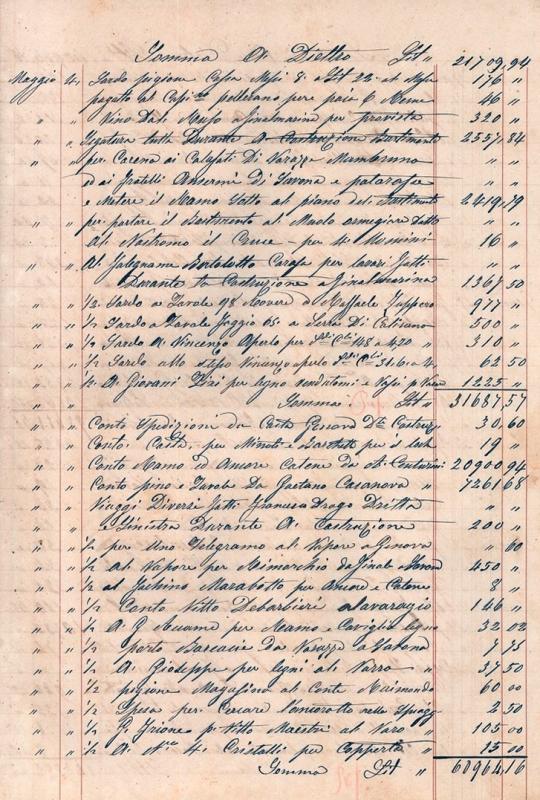 Somma Di Dietro Lit „ 21709,94
Maggio 4. Tardo pigione Casa Mesi 8 a Lit 22 al Mese 176 „
„ „ pagato al Capi.no pelterano per paia 6 Reme 46 „
„ „ Vino Dal Muso a Finalmarina per provista 320 „
„ „ Segatura tutta Durante a Costruzione Bastimento 2557,84
„ „ per Carena ai Calafati Di Varazze „ „
ed ai Fratelli Anserni Di Savona e „ „
e Metere il Mamo Sotto al piano del Bastimento 2419,79
„ „ per portare il Bastimento al Muolo ormegiare Dato „ „
al Nostromo il Cruce – per 4 Uomini 16 „
„ „ Al Falegname Bortolotto Carafa per lavori Fatti „ „
Durante la Costruzione a Finalmarina 1367 50
„ „ 1/2 Tardo a Tavole 98 Rovere di Raffaele 977 „
„ „ 1/2 Tardo a Tavole Foggio 65 a Serra Di 500 „
„ „ 1/2 Tardo A Vincenzo Aperlo per 148 a 420 „ 310 „
„ „ 1/2 Tardo allo stesso Vincenzo aperlo 62 50
„ „ 1/2 A Giovani per legno e 1225 „
„ „ Somma Lit „ 31687,57
„ „ Conto Spedizioni da Costa Genova 30,60
„ „ Conto Costa per Minuto e per il 19 „
„ „ Conto Ramo ed Ancore Catene da 20900 94
„ „ Conto pino e Tavole Da Gaetano Casanova „ 7261 68
„ „ Viaggi Diversi Fatti Francesco Drago Dritta „ „
„ „ e Sinistra Durante A Costruzione 200 „
„ „ 1/2 per Uno Telegramo al Vapore a Genova „ 60
„ „ 1/2 Al Vapore per Rimorchio da Finale a Savona 450 „
„ „ 1/2 al Fachino Marabotto per Ancore e Catene 8 „
„ „ 1/2 Conto Vitto Debarbieri alavaragio 146 „
„ „ 1/2 A G Accame per Ramo e Caviglie legno 32 02
„ „ 1/2 porto Barcacie Da Varazze a Savona 7 75
„ „ 1/2 A Gioseppe per legni al Varro „ 37,50
„ „ 1/2 pigione Magasino al Conte Raimondo 60 00
„ „ 1/2 Spesa per Cercare nelle 2 50
„ „ 1/2 p. Vitto Maestri al Varo „ 105 00
„ „ 1/2 A 4. Cristalli per Copperta „ 15 00
Somma Lit „ 60964,16